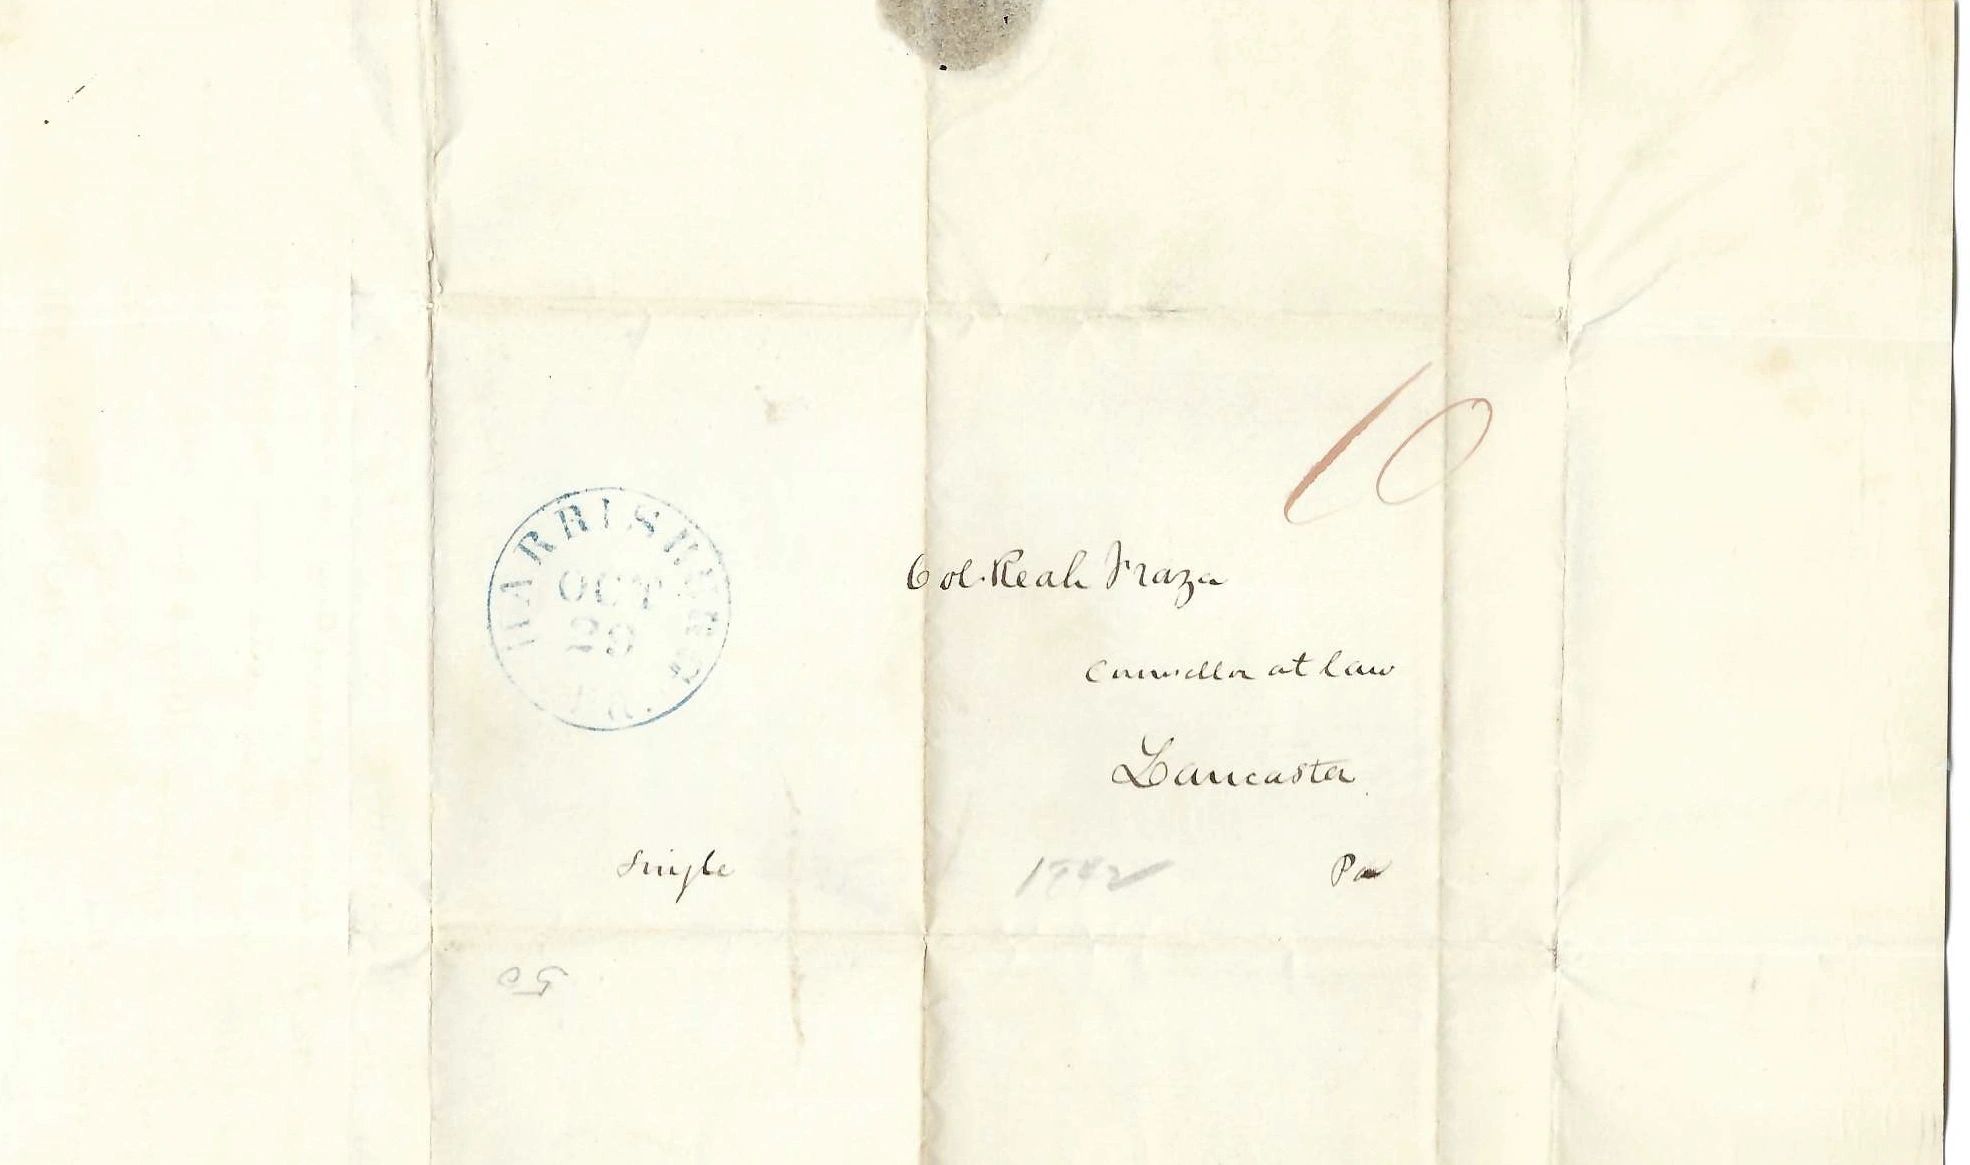 10
HARRISBURG
OCT
29
PA.
Col. Reah Frazer
Counsellor at law
Lancaster
Single
1842
Pa
50